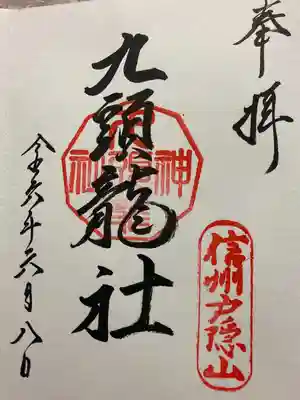 奉拝
信州戸隠山
九頭龍社
令六年六月八日